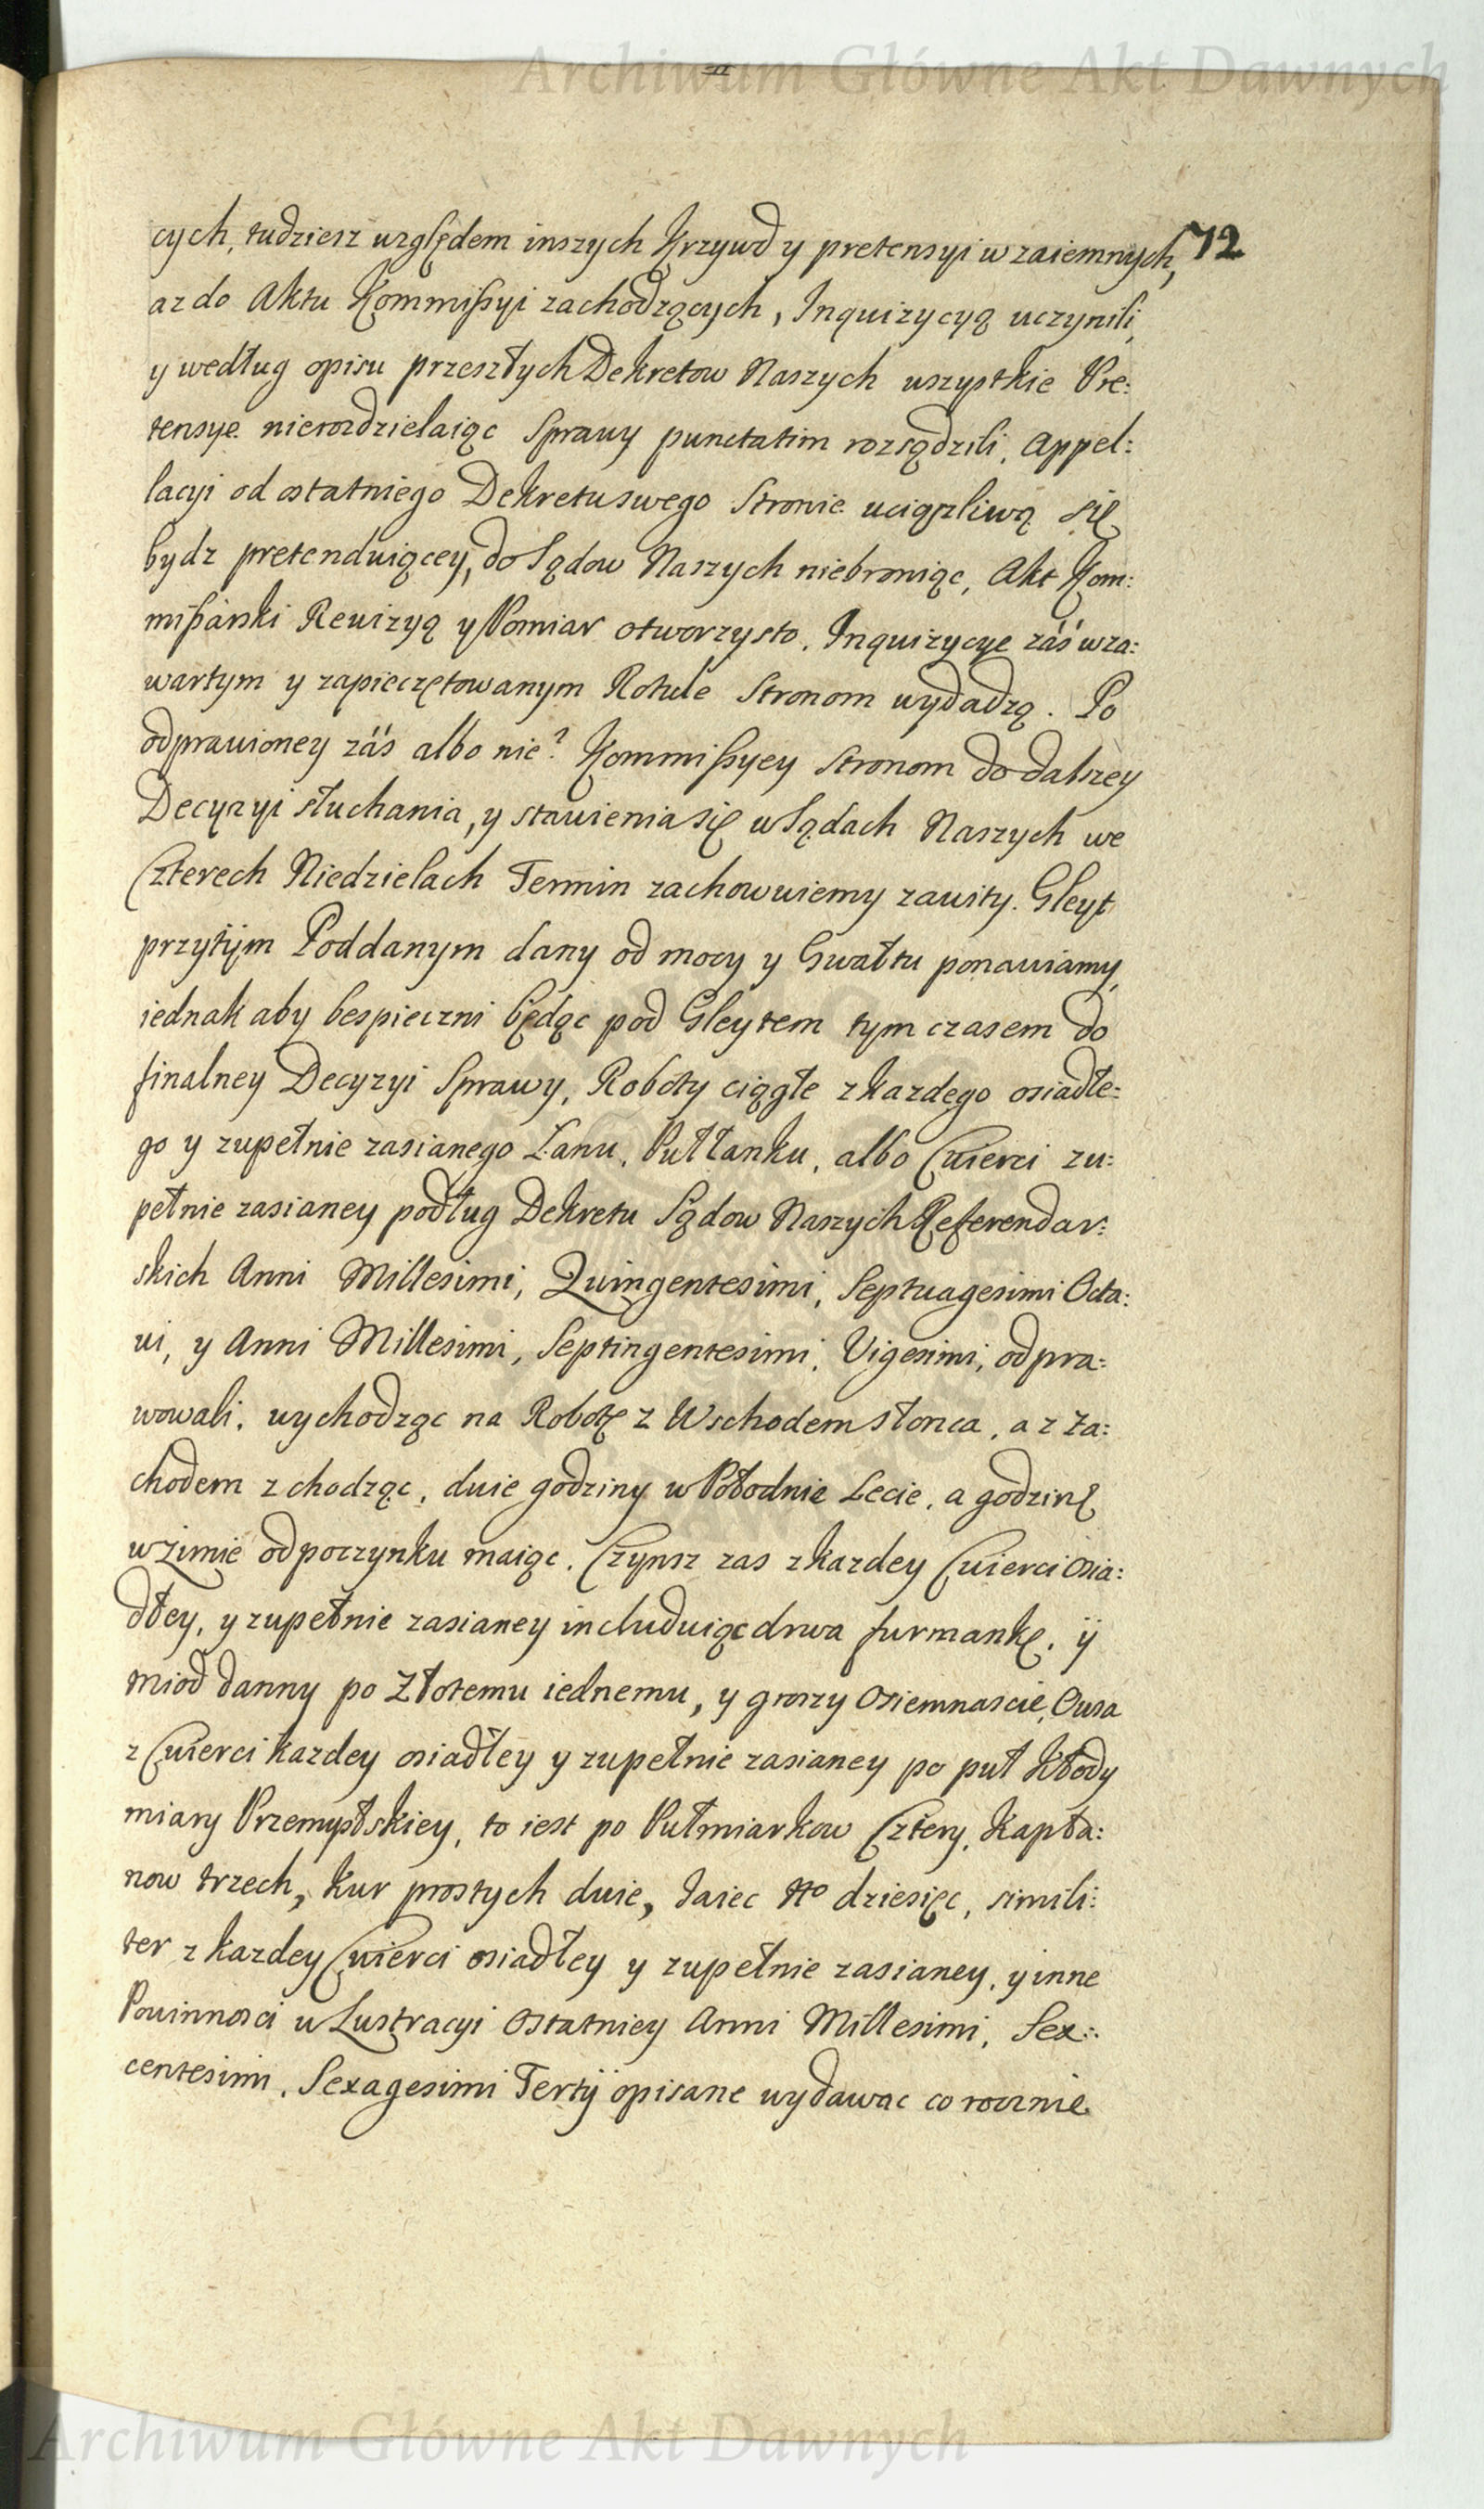 Archiwum Główne Akt Dawnych
72
cych, tudziesz względem inszych Krzywd y pretensyi wzaiemnych,
az do Aktu Kommißyi zachodzących, Inquizycyą uczynili,
y według opisu przeszłych Dekretow Naszych wszystkie Pre:
tensye nierozdzielaiąc Sprawy punctatim rozsądzili, Appel:
lacyi od ostatniego Dekretu swego Stronie uciązliwą się
bydz pretenduiącey, do Sądow Naszych niebroniąc, Akt Kom:
mißarski Rewizyą y Pomiar otworzysto. Inquizycye záś wza:
wartym y zapieczętowanym Rotule Stronom wydadzą. Po
odprawioney záś albo nie? Kommißyey Stronom do dalszey
Decyzyi słuchania, y stawienia się w Sądach Naszych we
Czterech Niedzielach Termin zachowuiemy zawity. Gleyt
przytÿm Poddanym dany od mocy y Gwałtu ponawiamy,
iednak aby bespieczni będąc pod Gleytem tym czasem do
finalney Decyzyi Sprawy, Roboty ciągłe z kazdego osiadłe:
go y zupełnie zasianego Łanu, Pułłanku, albo Cwierci zu:
pełnie zasianey podług Dekretu Sądow Naszych Referendar:
skich Anni Millesimi, Quingentesimi, Septuagesimi Octa:
vi, y Anni Millesimi, Septingentesimi, Vigesimi, odpra:
wowali, wychodząc na Robotę z Wschodem słonca, a z Za:
chodem z chodząc, dwie godziny w Połodnie Lecie, a godzinę
w Zimie odpoczynku maiąc. Czynsz zas z kazdey Cwierci Osia:
dłey, y zupełnie zasianey includuiąc drwa furmankę, ÿ
miod danny po Złotemu iednemu, y groszy Osiemnascie, Owsa
z Cwierci kazdey osiadłey y zupełnie zasianey po puł Kłody
miary Przemysłskiey, to iest po Pułmiarkow Cztery, Kapła:
now trzech, kur prostych dwie, Jaiec No dziesięc, simili:
ter z kazdey Cwierci osiadłey y zupełnie zasianey, y inne
Powinnosci w Lustracyi Ostatniey Anni Millesimi, Sex:
centesimi, Sexagesimi Tertÿ opisane wydawac co rocznie
Archiwum Główne Akt Dawnych